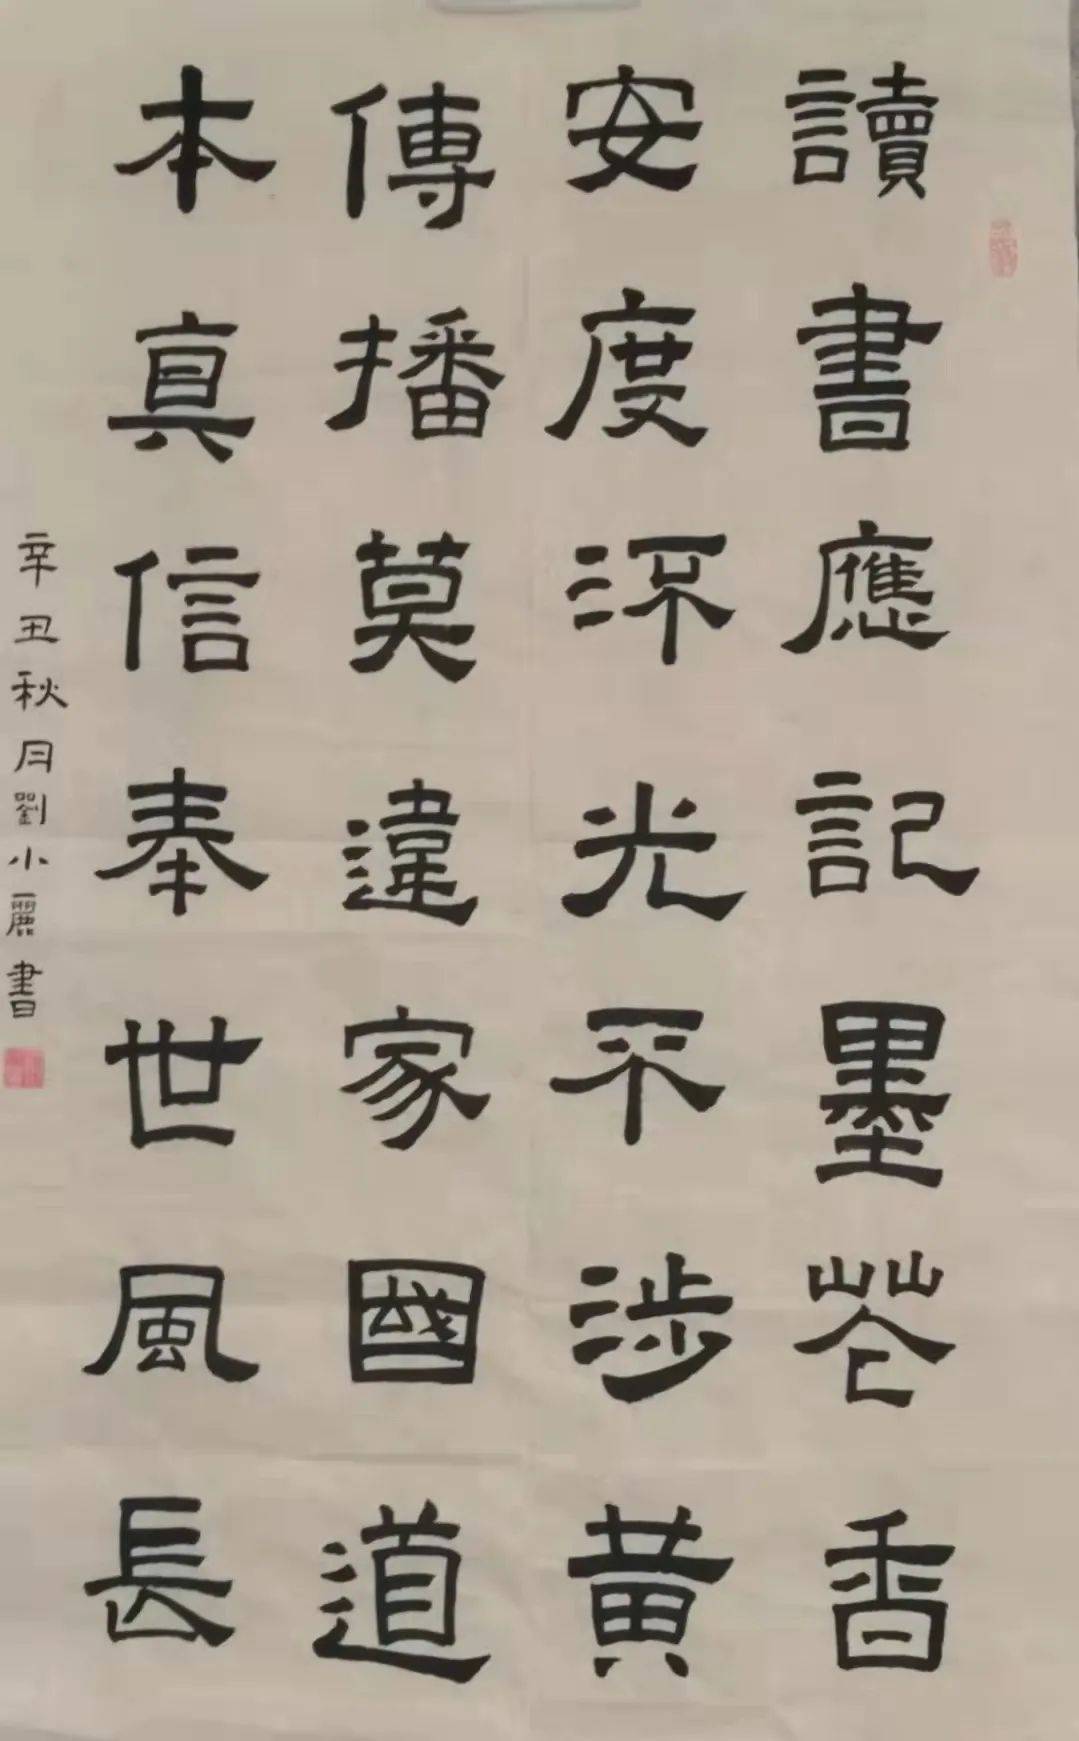 讀書應記墨花香
安度流光不涉黃
傳播莫違家國道
本真信奉世風長
辛丑秋月劉小麗書